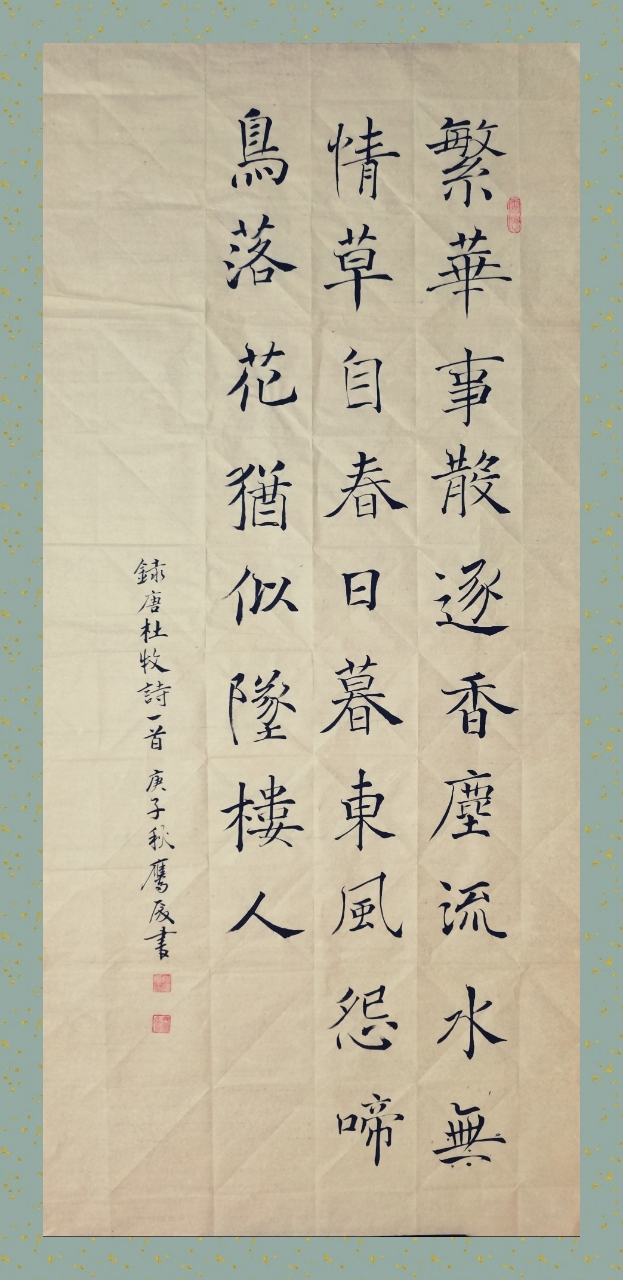 繁華事散逐香塵流水無
情草自春日暮東風怨啼
鳥落花猶似墜樓人
錄唐杜牧詩一首 庚子秋鷹辰書